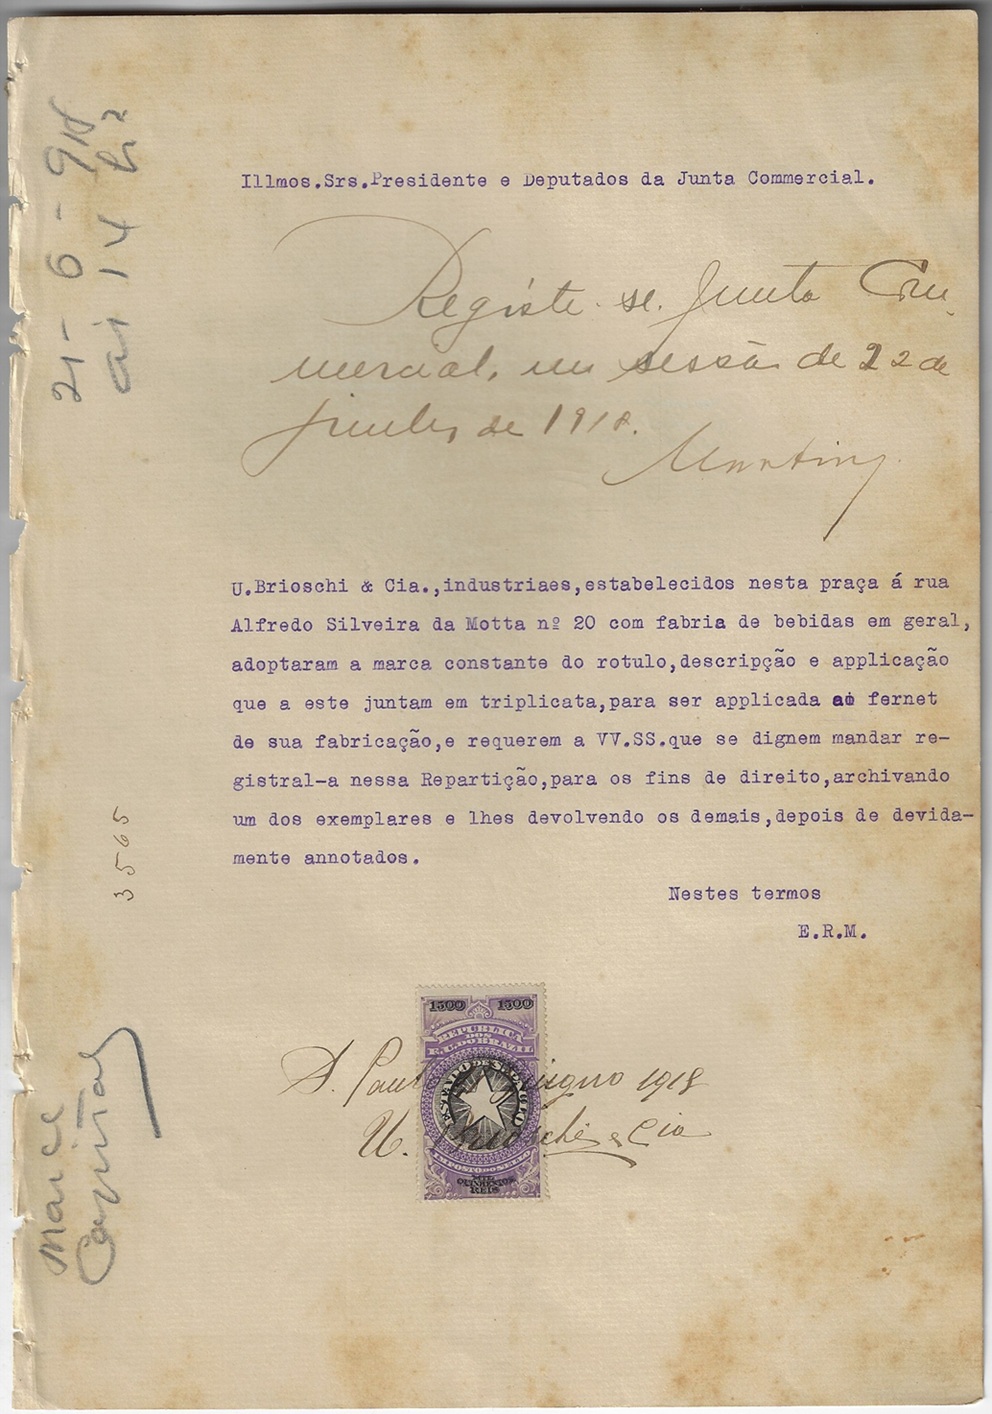 21-6-918
ás 14 hs
Illmos.Srs.Presidente e Deputados da Junta Commercial.
Registe-se. Junta Com
mercial, em sessão de 22 de
junho de 1918.
Martins
U.Brioschi & Cia.,industriaes,estabelecidos nesta praça á rua
Alfredo Silveira da Motta nº 20 com fabria de bebidas em geral,
adoptaram a marca constante do rotulo,descripção e applicação
que a este juntam em triplicata,para ser applicada ao fernet
de sua fabricação,e requerem a VV.SS.que se dignem mandar re-
gistral-a nessa Repartição,para os fins de direito,archivando
um dos exemplares e lhes devolvendo os demais,depois de devida-
mente annotados.
Nestes termos
E.R.M.
3565
1500 1500
REPUBLICA
DOS
E.U.DO BRAZIL
ESTADO DE S.PAULO
IMPOSTO DO SELLO
MIL
QUINHENTOS
REIS
S. Paulo junho 1918
U. Brioschi & Cia
Marca